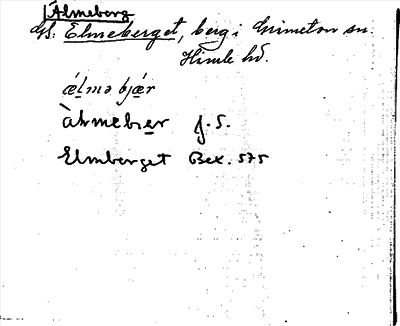 Älmeberg
Gs: Elmeberget, berg i Grimeton sn.
Himle hd.
ǽlmə bjǽr
àlmebær f. S.
Elmberget Bex. 575